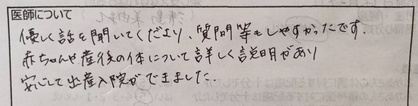 医師について
優しく話を聞いてくださり、質問等もしやすかったです。
赤ちゃんや産後の体について詳しく説明があり
安心して出産入院ができました。